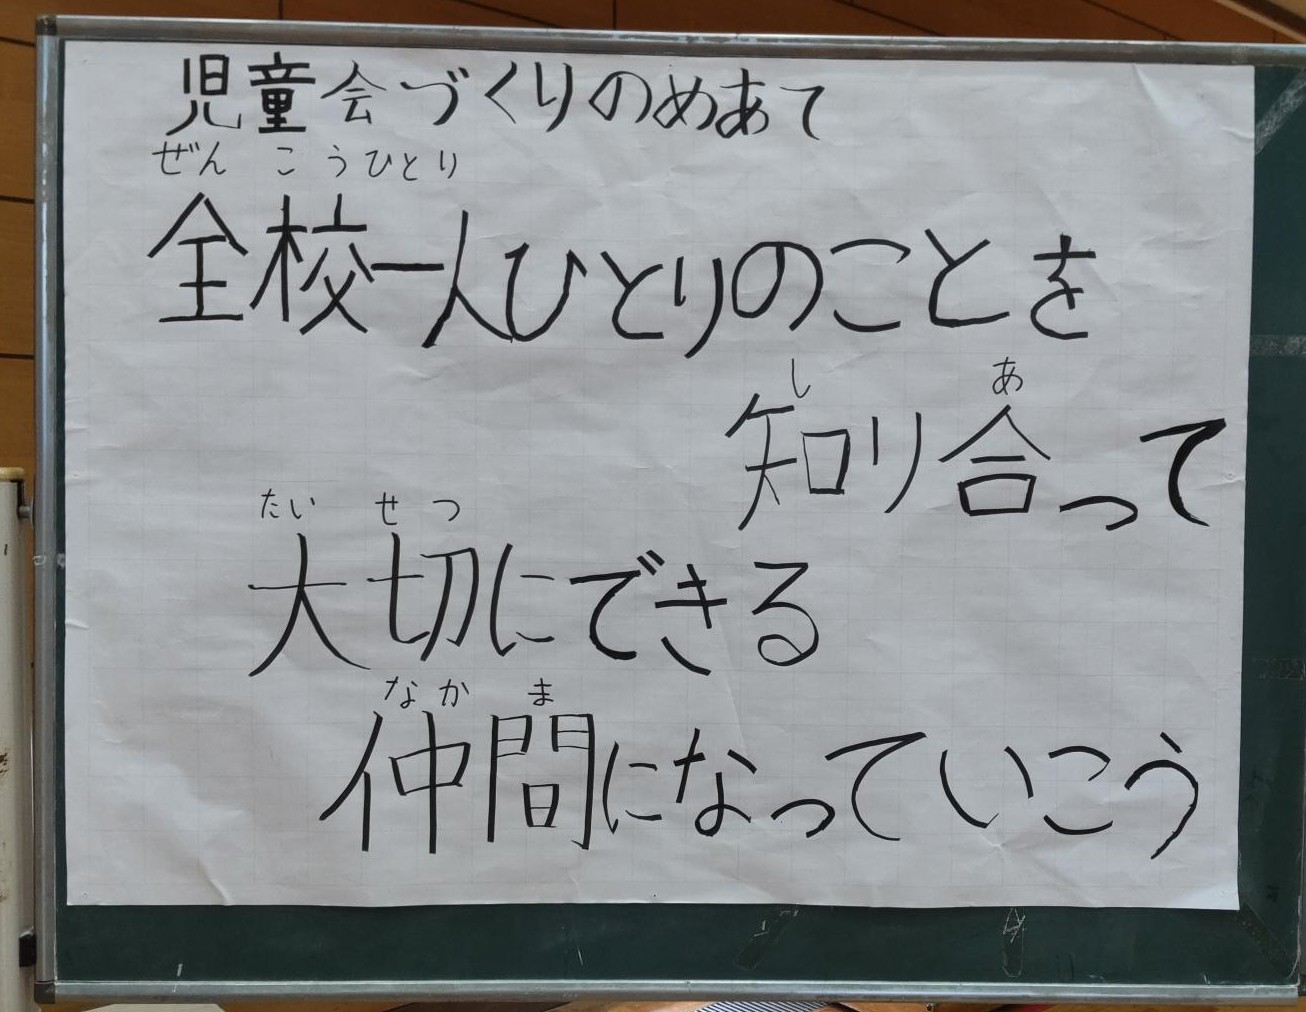 児童会づくりのめあて
ぜん こうひとり
全校一人ひとりのことを
し あ
知り合って
たい せつ
大切にできる
なか ま
仲間になっていこう